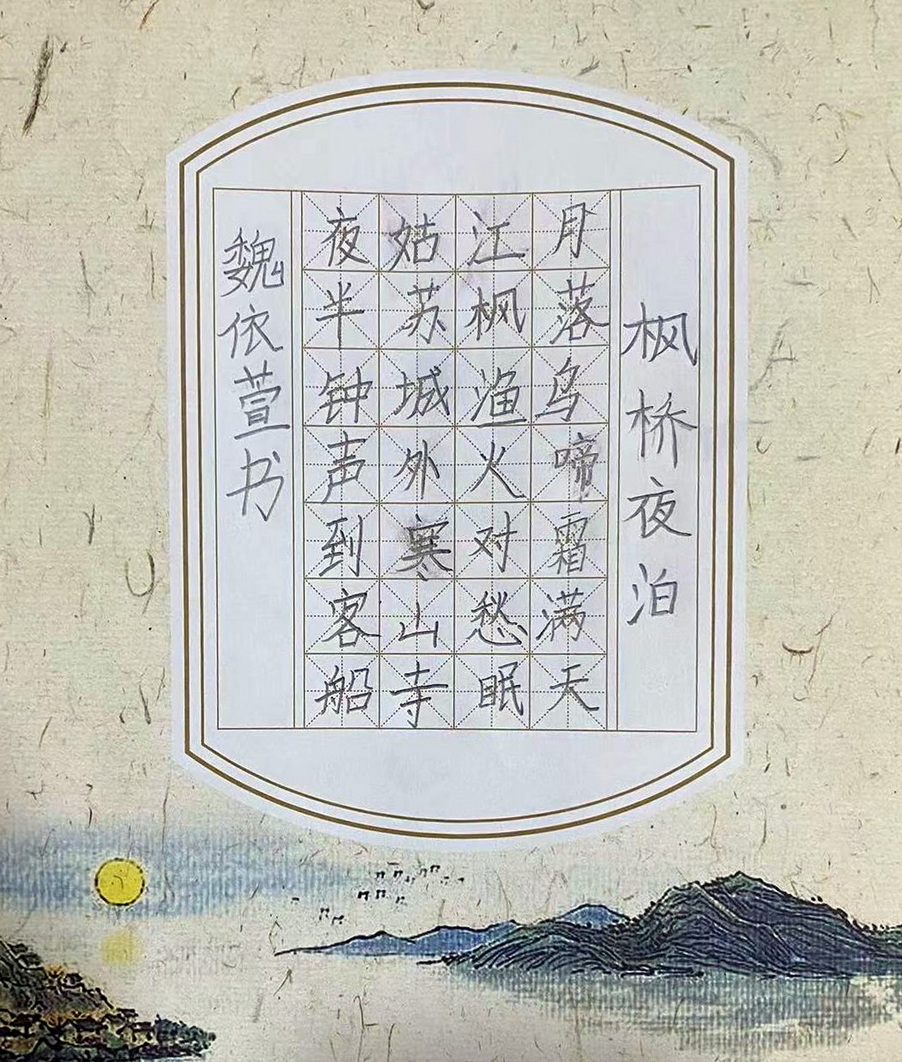 枫桥夜泊
月落乌啼霜满天
江枫渔火对愁眠
姑苏城外寒山寺
夜半钟声到客船
魏依萱书